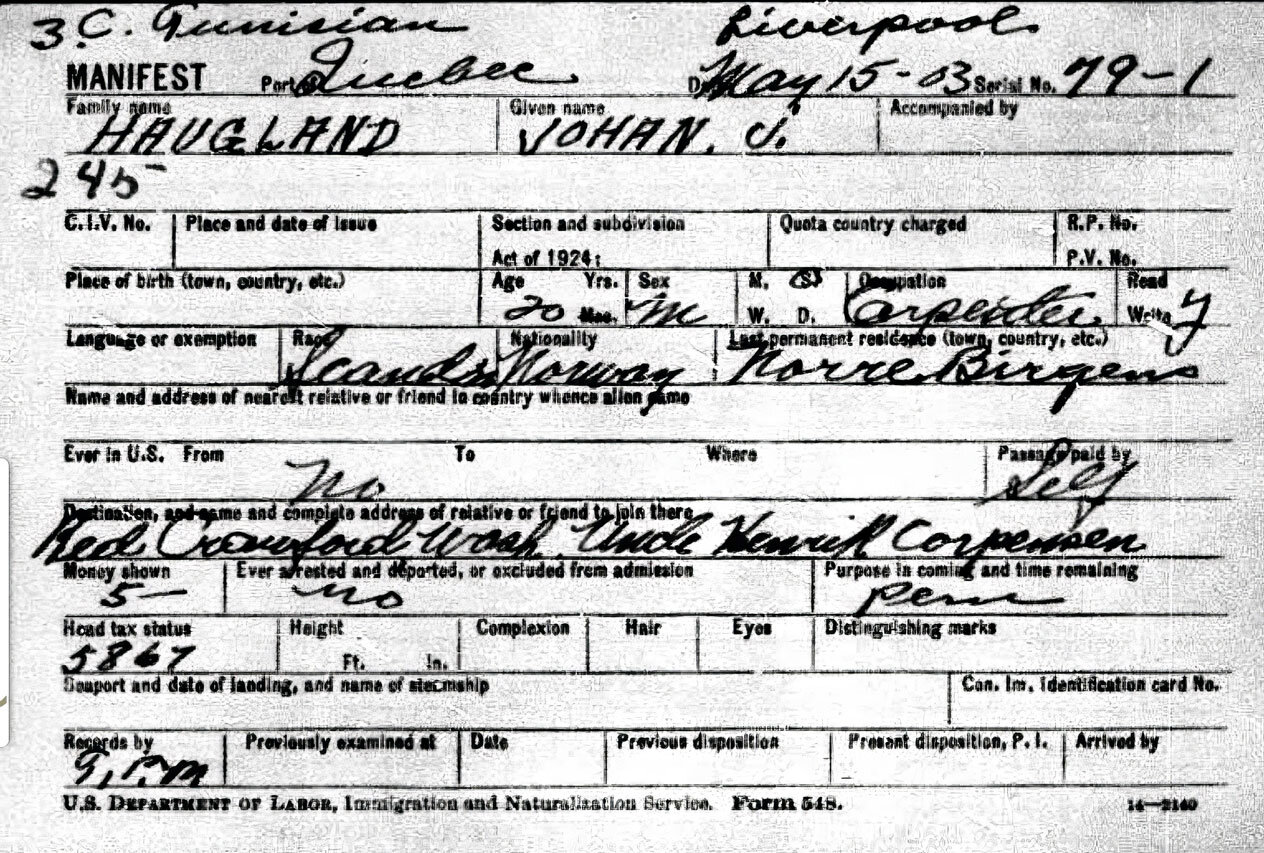 3.C. Tunisian Liverpool
MANIFEST Port Quebec D May 15-03 Serial No. 79-1
Family name Given name Accompanied by
HAUGLAND JOHAN. J.
245-
C.I.V. No. Place and date of issue Section and subdivision Quota country charged R.P. No.
Act of 1924: P.V. No.
Place of birth (town, country, etc.) Age Yrs. Sex M. (S) Occupation Read
20 Mos. M W. D. Carpenter Write y
Language or exemption Race Nationality Last permanent residence (town, country, etc.)
Scandin Norway Norre Birgens
Name and address of nearest relative or friend in country whence alien came
Ever in U.S. From To Where Passage paid by
No Self
Destination, and name and complete address of relative or friend to join there
Crawford Wash. Uncle Henrik Corpensen
Money shown Ever arrested and deported, or excluded from admission Purpose in coming and time remaining
5- No perm
Head tax status Height Complexion Hair Eyes Distinguishing marks
5867 Ft. In.
Seaport and date of landing, and name of steamship Con. Im. Identification card No.
Records by Previously examined at Date Previous disposition Present disposition, P. I. Arrived by
U.S. DEPARTMENT OF LABOR, Immigration and Naturalization Service. Form 548. 14—2140